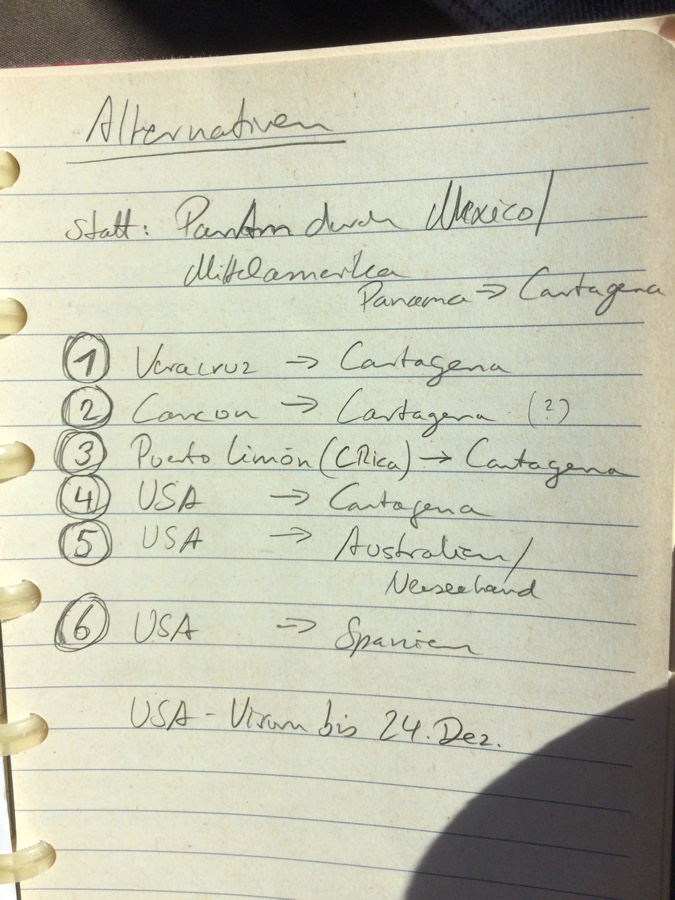 Alternativen
statt: PanAm durch Mexico/
Mittelamerika
Panama → Cartagena
① Veracruz → Cartagena
② Cancon → Cartagena (?)
③ Puerto Limón (CRica) → Cartagena
④ USA → Cartagena
⑤ USA → Australien/
Neuseeland
⑥ USA → Spanien
USA-Visum bis 24. Dez.